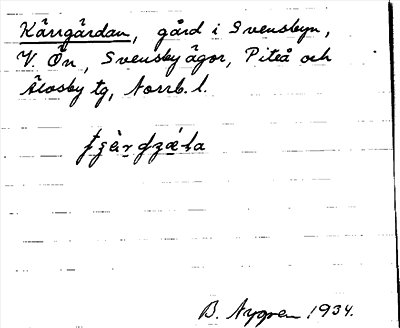 Kärrgårdan, gård i Svensbyn,
V. Ön, Svensby ägor, Piteå och
Älvsby tg, Norrb. l.
B. Nygren 1934.